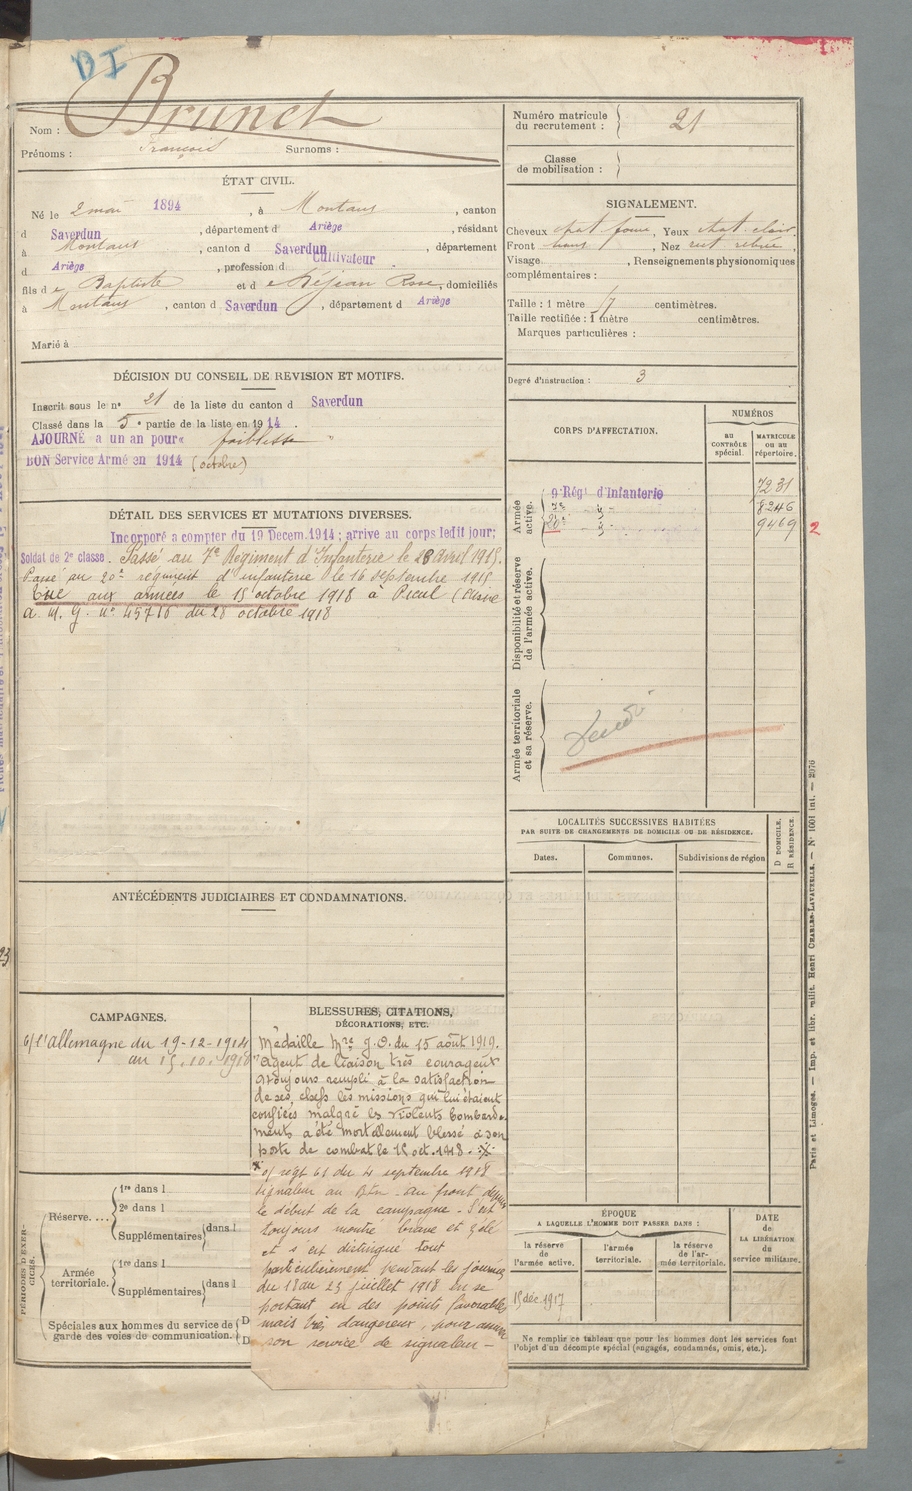 DI
Brunet
Nom :
Prénoms : François Surnoms :
ÉTAT CIVIL.
Né le 2 mai 1894, à Montaus, canton
d Saverdun, département d Ariège, résidant
à Montaus, canton d Saverdun, département
d Ariège, profession d Cultivateur
fils de Baptiste et de Réjean Rose, domiciliés
à Montaus, canton d Saverdun, département d Ariège
Marié à
DÉCISION DU CONSEIL DE REVISION ET MOTIFS.
Inscrit sous le n° 21 de la liste du canton d Saverdun
Classé dans la 5e partie de la liste en 1914.
AJOURNÉ a un an pour « faiblesse »
BON Service Armé en 1914 (octobre)
DÉTAIL DES SERVICES ET MUTATIONS DIVERSES.
Incorporé a compter du 19 Decem.1914; arrive au corps ledit jour;
Soldat de 2e classe. Passé au 7e Régiment d'Infanterie le 28 Avril 1915.
Passé au 20e régiment d'infanterie le 16 septembre 1915
Tué aux armées le 15 octobre 1918 à (Aisne
a. m. g. n° 45718 du 28 octobre 1918
ANTÉCÉDENTS JUDICIAIRES ET CONDAMNATIONS.
CAMPAGNES.
c/ l'allemagne du 19-12-1914
au 15.10.1918
BLESSURES, CITATIONS,
DÉCORATIONS, ETC.
Médaille Mre J.O. du 15 août 1919.
"Agent de liaison très courageux
a toujours rempli à la satisfaction
de ses chefs les missions qui lui étaient
confiées malgré les violents bombarde-
ments a été mortellement blessé à son
poste de combat le 15 oct. 1918.
o/ régt 61 du 4 septembre 1918
signaleur au Btn - au front depuis
le début de la campagne - S'est
toujours montré brave et zélé
et s'est distingué tout
particulièrement pendant les journées
du 18 au 23 juillet 1918 en se
portant en des points favorables
mais très dangereux, pour assurer
son service de signaleur -
PÉRIODES D'EXERCICES.
Réserve.... 1re dans l
2e dans l
Supplémentaires dans l
Armée territoriale. 1re dans l
Supplémentaires dans l
Spéciales aux hommes du service de
garde des voies de communication.
D
D
Numéro matricule
du recrutement : 21
Classe
de mobilisation :
SIGNALEMENT.
Cheveux chat foncé, Yeux chat. clair
Front , Nez rect. ,
Visage , Renseignements physionomiques
complémentaires :
Taille : 1 mètre 57 centimètres.
Taille rectifiée : 1 mètre centimètres.
Marques particulières :
Degré d'instruction : 3
CORPS D'AFFECTATION.
NUMÉROS
AU
CONTRÔLE
spécial.
MATRICULE
OU AU
répertoire.
Armée
active.
9e Régt d'Infanterie 7231
7e 8246
20e 9469
2
Disponibilité et réserve
de l'armée active.
Armée territoriale
et sa réserve.
LOCALITÉS SUCCESSIVES HABITÉES
PAR SUITE DE CHANGEMENTS DE DOMICILE OU DE RÉSIDENCE.
Dates. Communes. Subdivisions de région
D DOMICILE.
R RÉSIDENCE.
ÉPOQUE
A LAQUELLE L'HOMME DOIT PASSER DANS :
la réserve
de
l'armée active.
l'armée
territoriale.
la réserve
de l'ar-
mée territoriale.
DATE
de
LA LIBÉRATION
du
service militaire.
15 déc. 1917
Ne remplir ce tableau que pour les hommes dont les services font
l'objet d'un décompte spécial (engagés, condamnés, omis, etc.).
Paris et Limoges. — Imp. et libr. milit. Henri CHARLES-LAVAUZELLE. — N° 1601 int. — 2076